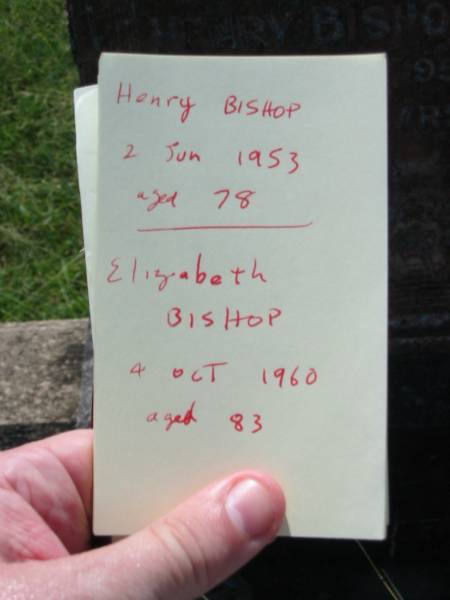 HENRY BISHO
Henry BISHOP
2 Jun 1953
aged 78
Elizabeth
BISHOP
4 OCT 1960
aged 83